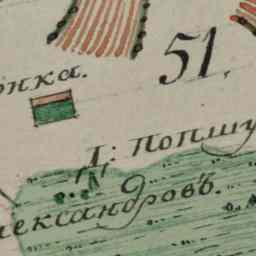 нка.
51.
Д: Попшу
лександровъ.